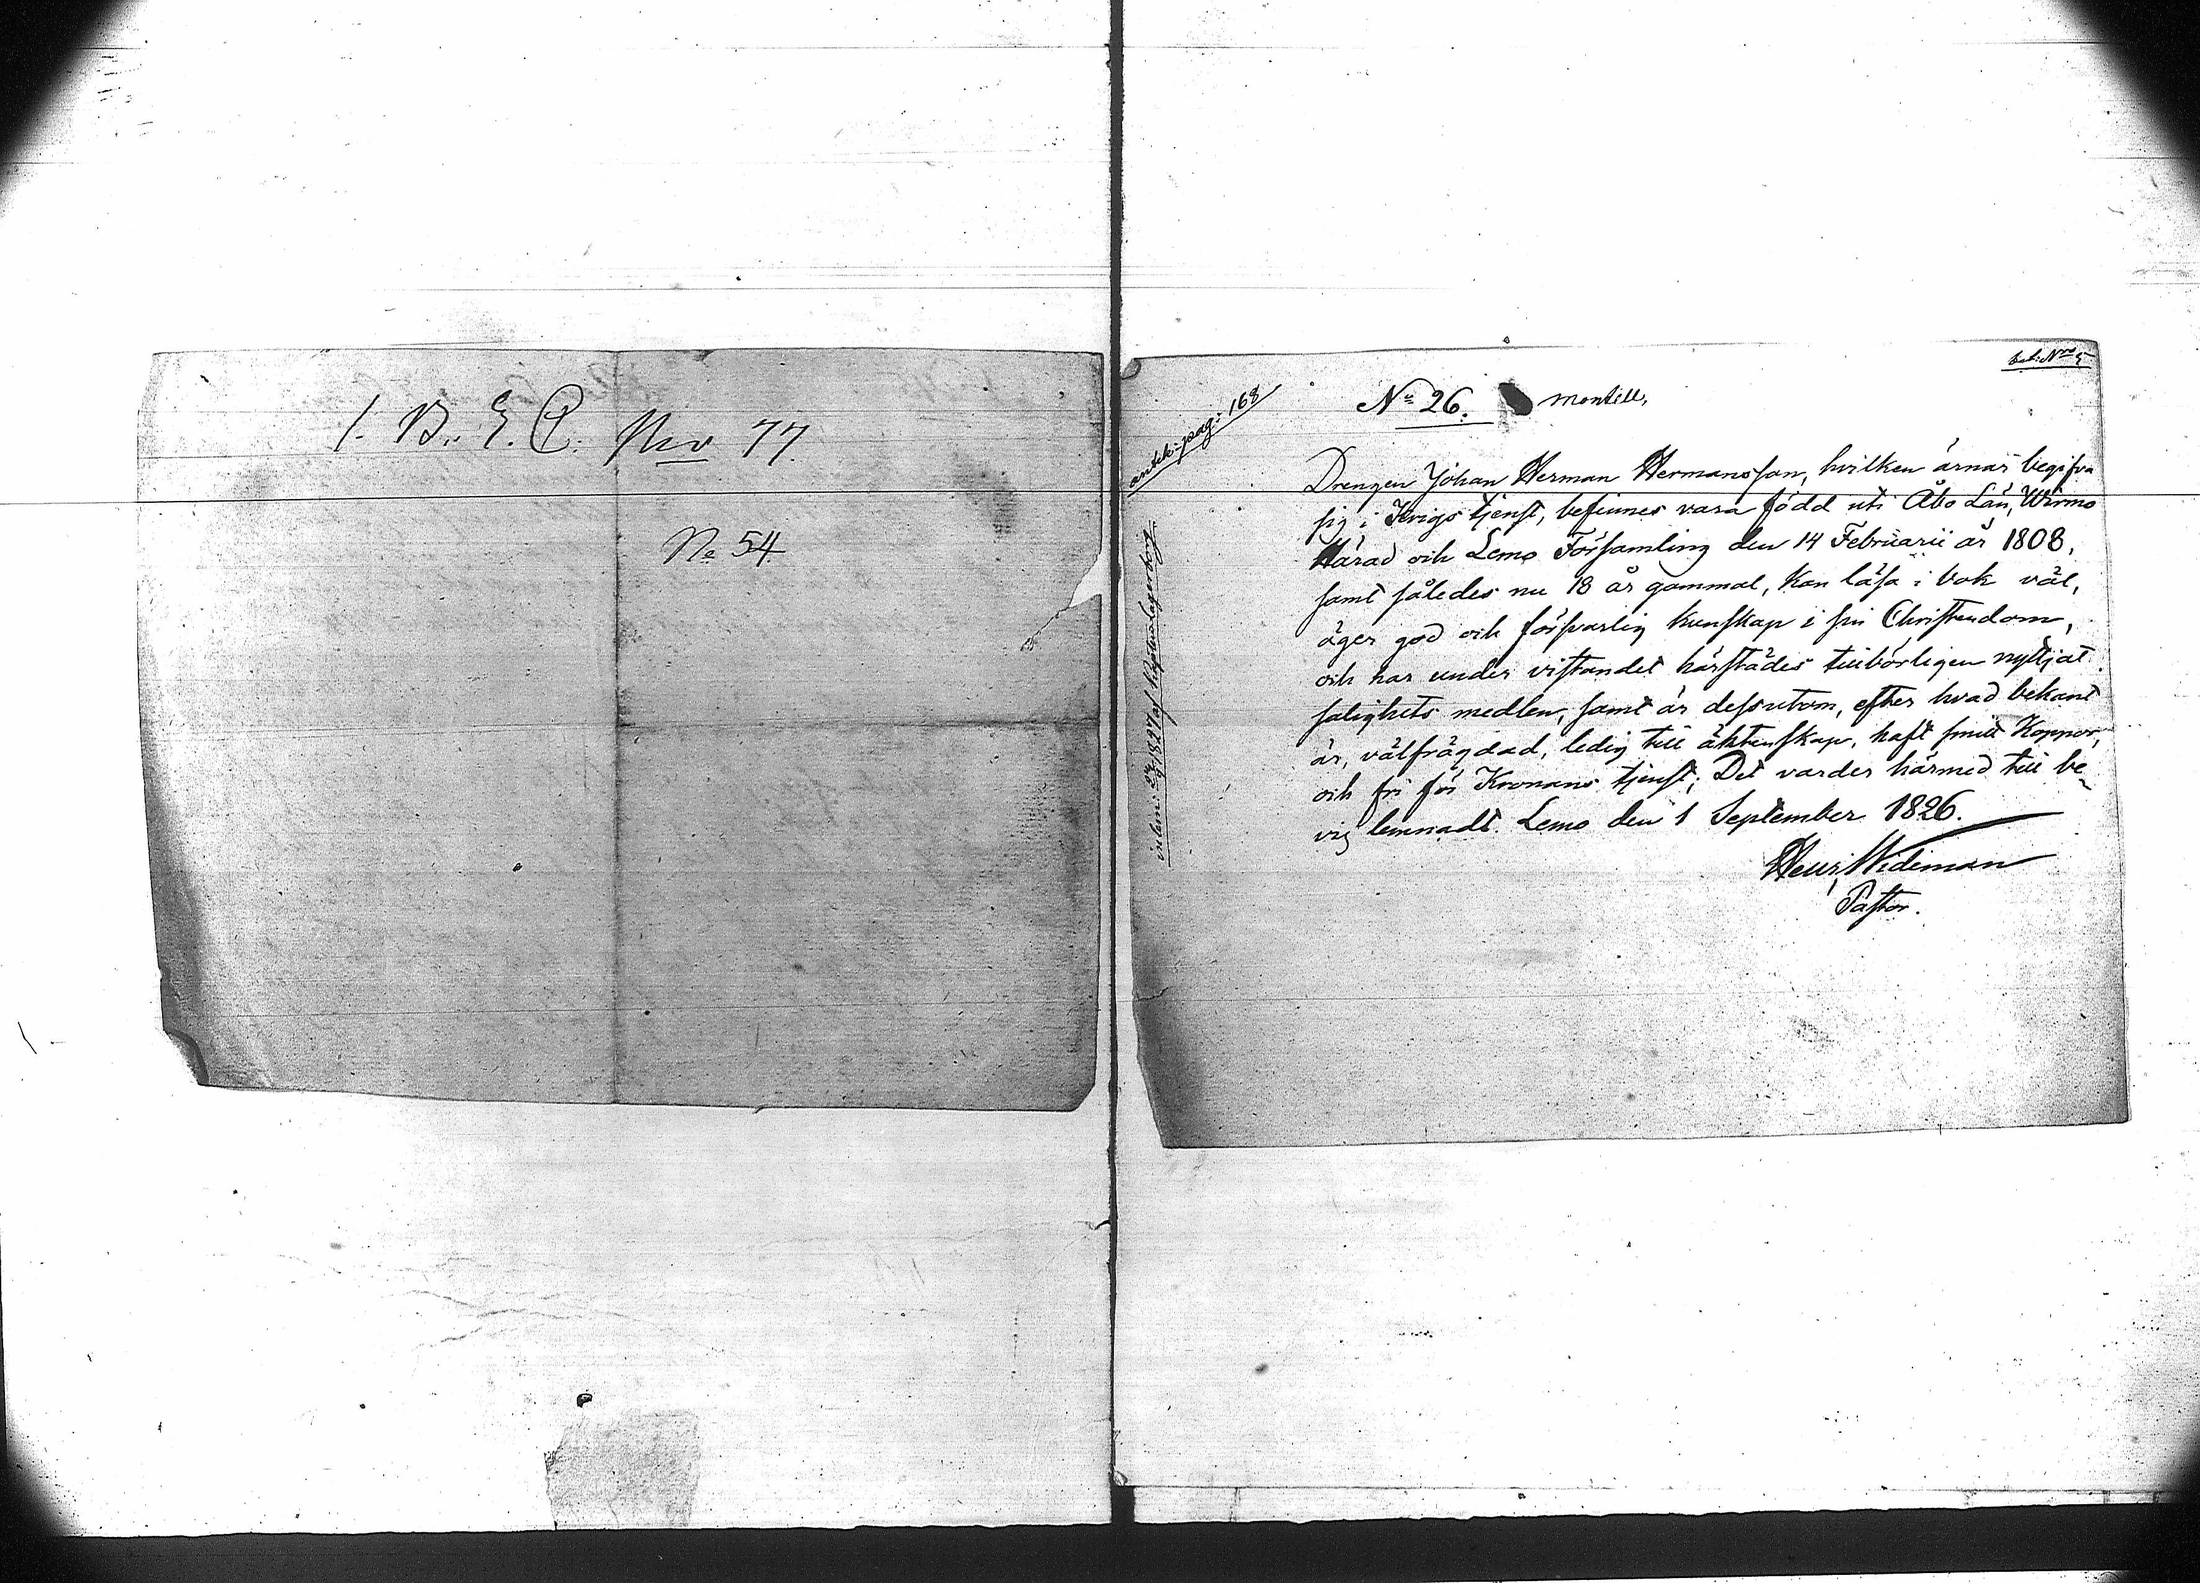 1. B. E. C. Nro 77.
No 54
bet: Nro 5
No 26. montell,
antek: pag: 168
inlem: 27/9 1827 af Kapten Lagerborg
Drengen Johan Herman Hermansson, hvilken ärnar begifva
sig i Krigs tjenst, befinnes vara född uti Åbo Län, Wirmo
Härad och Lemo Församling den 14 Februarii år 1808,
samt således nu 18 år gammal, kan läsa i bok väl,
äger god och försvarlig kunskap i sin Christendom,
och har under vistandet härstädes tillbörligen nyttjat
salighets medlen, samt är dessutom, efter hvad bekant
är, välfrägdad, ledig till äktenskap, haft små Koppor,
och fri för Kronans tjenst; Det varder härmed till be-
vis lemnadt. Lemo den 1 September 1826.
Henr. Wideman
Pastor.